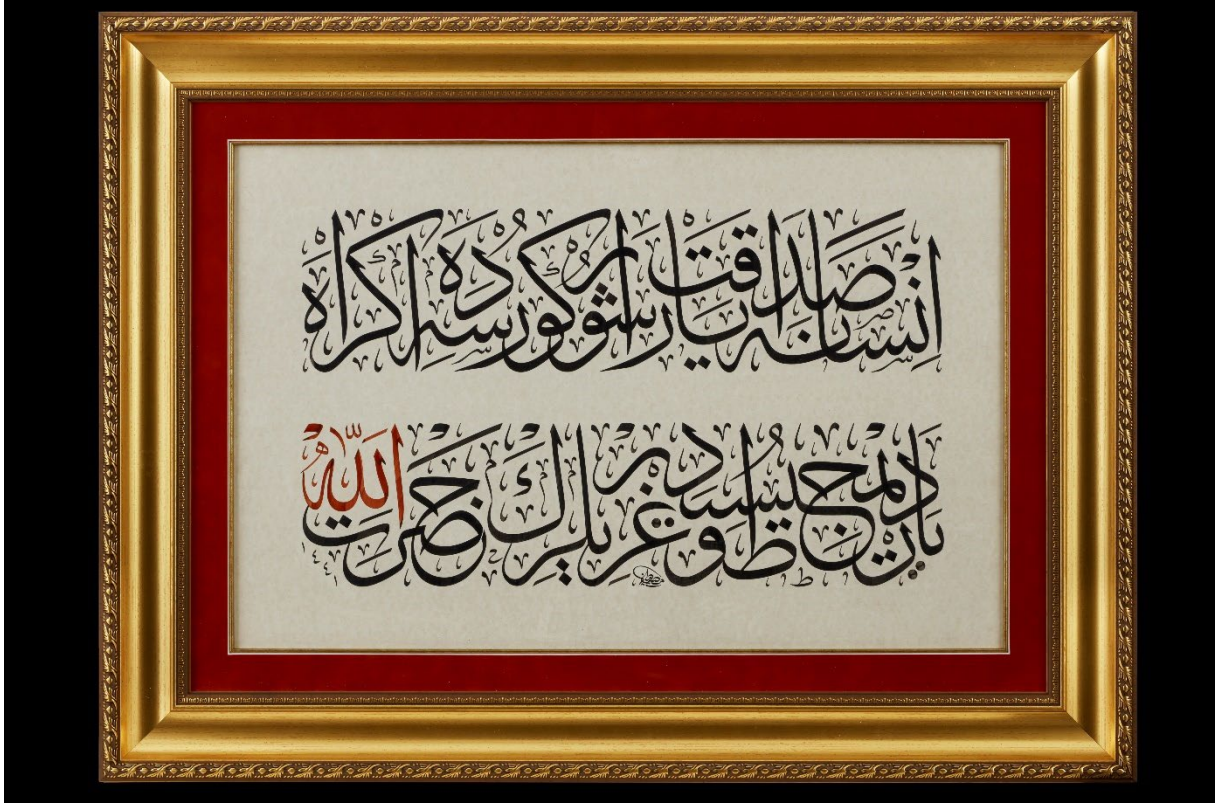 انسانه صداقت ياراشور كورسه ده اكراه
يارديمجيسيدر طوغريلرك حضرت الله
١٤٤١